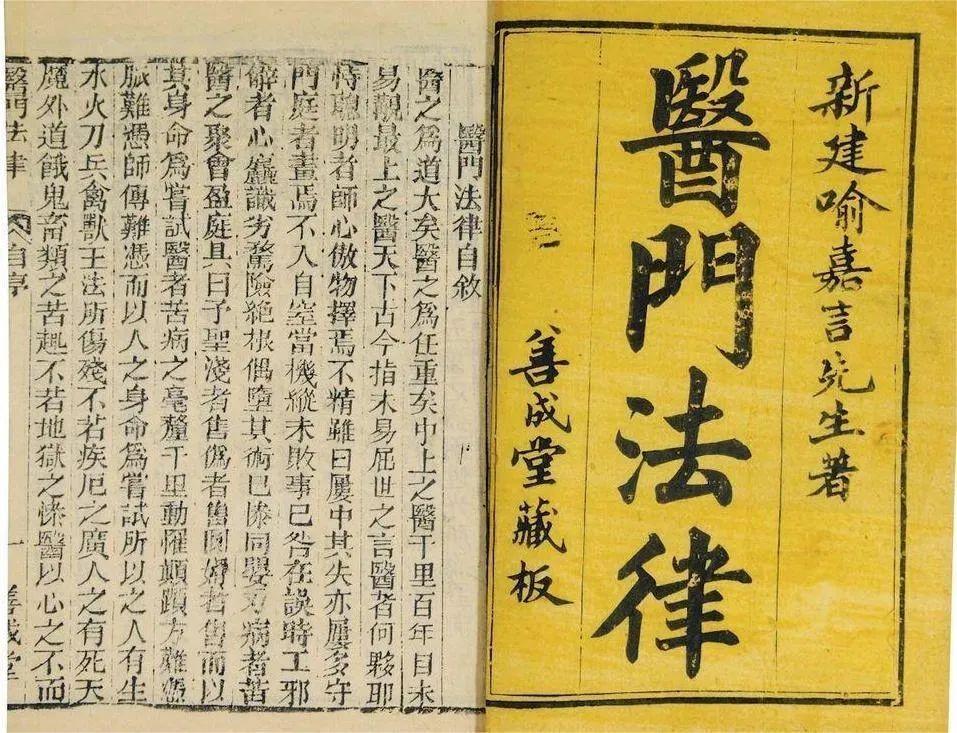 新建喻嘉言先生著
醫門法律
善成堂藏板
醫門法律自敘
醫之爲道大矣醫之爲任重矣中上之醫千里百年目未
易覯最上之醫天下古今指末易屈世之言醫者何夥耶
恃聰明者師心傲物擇焉不精雖曰屢中其失亦屢多守
門庭者畫焉不入自窒當機縱未敗事已咎在誤時工邪
僻者心麤識劣騖險絶根偶墮其術已慘同嬰刃病者苦
醫之聚會盈庭具曰予聖淺者售僞者售圓滑者售而以
其身命爲嘗試醫者苦病之毫釐千里動罹顛躓方難憑
脈難憑師傳難憑而以人之身命爲嘗試所以人之有生
水火刀兵禽獸王法所傷殘不若疾厄之廣人之有死夭
魔外道餓鬼畜類之苦趣不若地獄之慘醫以心之不而
醫門法律 自序 一 善成堂